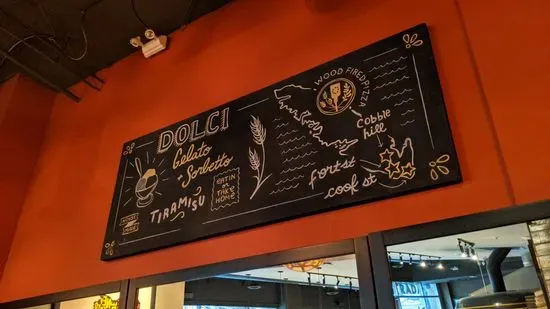 DOLCI
Gelato
+ Sorbetto
TIRAMISU
EAT IN
OR
TAKE
HOME
WOOD FIRED PIZZA
Cobble
hill
fort st
cook st